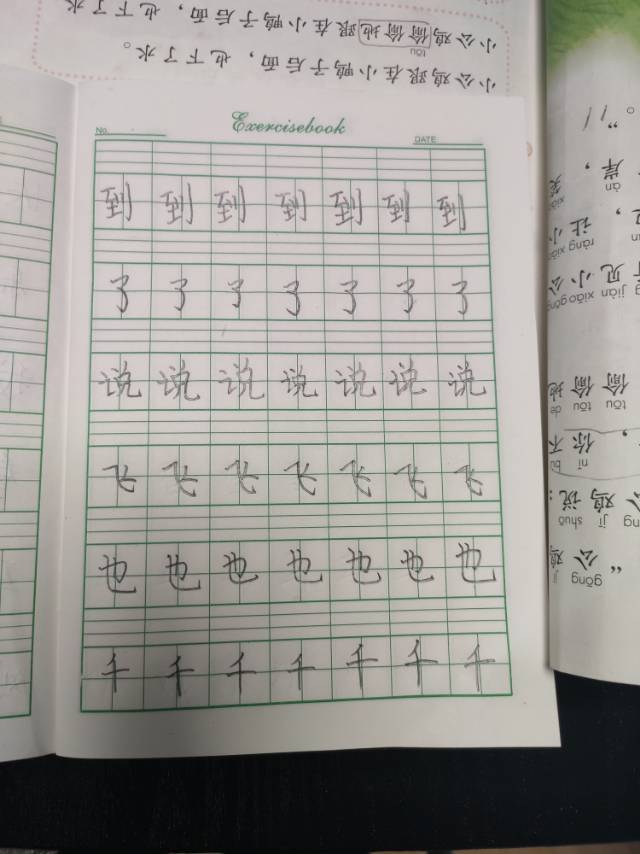 No.
Exercisebook
DATE
到 到 到 到 到 到 到
了 了 了 了 了 了 了
说 说 说 说 说 说 说
飞 飞 飞 飞 飞 飞 飞
也 也 也 也 也 也 也
千 千 千 千 千 千 千
小公鸡跟在小鸭子后面，也下了水。
tōu
小公鸡偷偷地跟在小鸭子后面，也下了水。
gōng
“公鸡
jī shuō
鸡说：
nǐ bù
，你不
tōu tōu de
偷偷地
jiàn xiǎo gōng
见小公
ràng xiǎo
，让小
àn
岸，